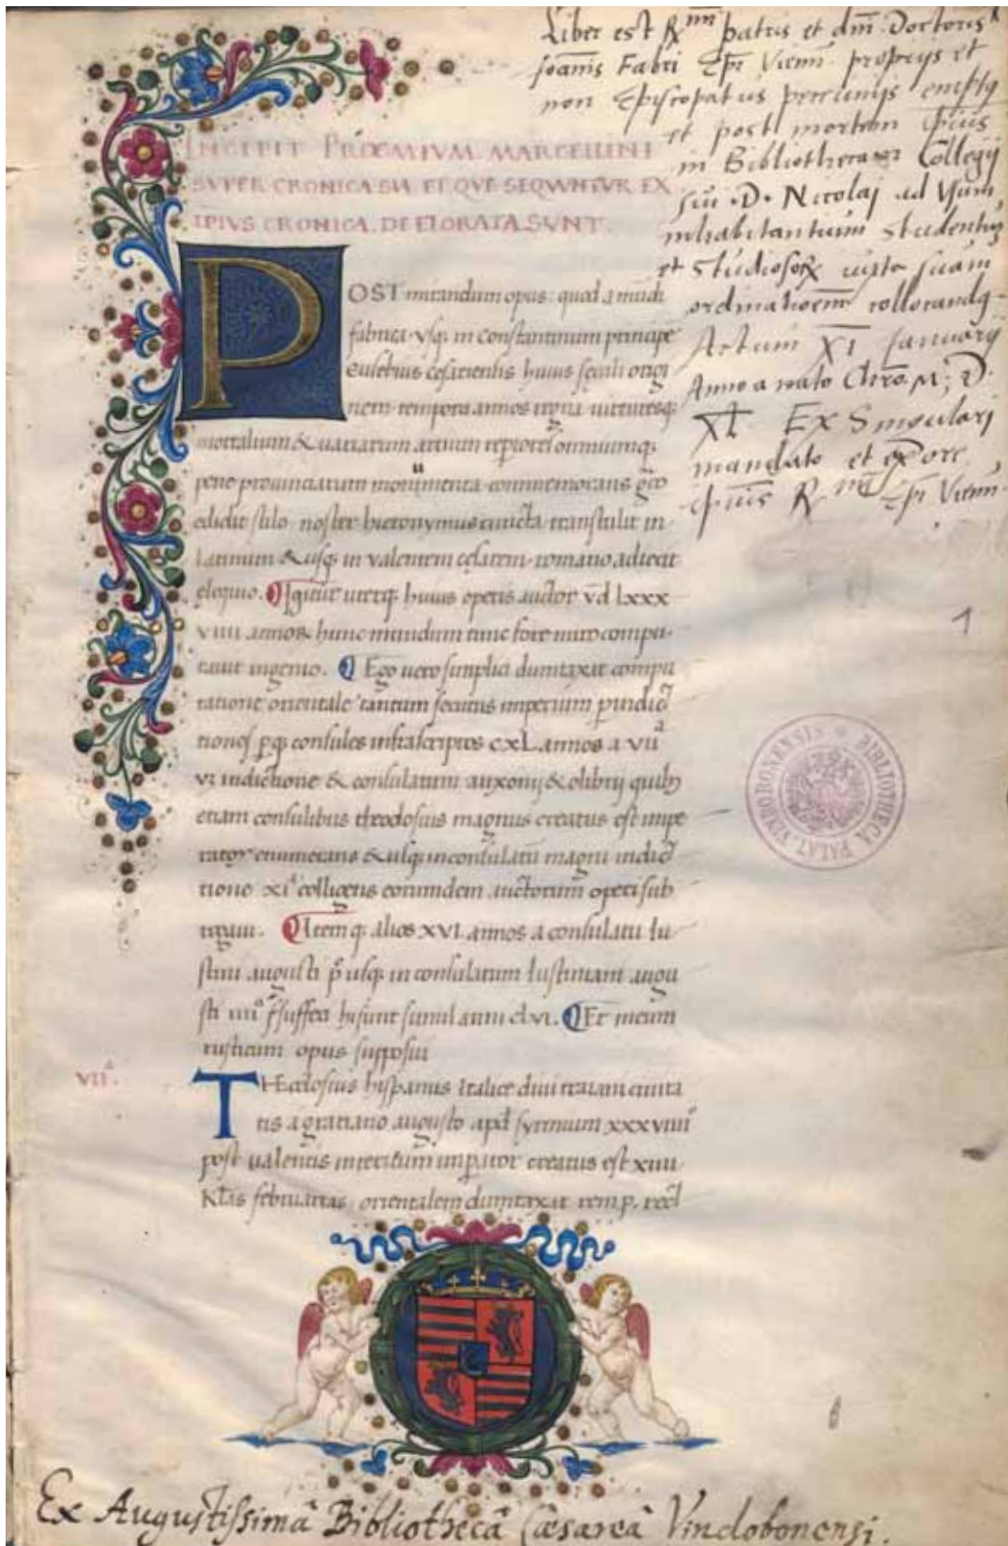 Liber est Rmm patris et dm̄ Doctoris
Joanis Fabri Ep̄i Vienn̄ proprijs et
non Episcopatus peccunijs emptq
et post mortem ipsius
in Bibliothecam Collegij
sui D. Nicolaj ad Vsum
inhabitantium studentium
et studiosorꝝ iuxta suam
ordinationem collocandq
Actum XI Januarij
Anno a nato Chro. M. D.
XL Ex Singulari
mandato et ex ore
ipsius Rmi Ep̄i Vienn̄.
INCIPIT PROEMIVM. MARCELLINI
SVPER CRONICA SVA ET QVE SEQVNTVR EX
IPIVS CRONICA. DEFLORATA SVNT.
POST mirandum opus: quod a mūdi
fabrica usq; in constantinum principē
Eusebius cesariensis huius seculi origi
nem tempora annos regna uirtutesq;
mortalium & uariarum artium reptores omniumq;
pene prouinciarum monumenta commemorans grȩco
edidit stilo noster hieronymus cuncta transtulit in
latinum & usq; in valentem cȩsarem romano adiecit
eloquio. Igitur uterq; huius operis auctor v̄d lxxx
viiii annos hunc mundum tunc fore miro compu
tauit ingenio. Ego uero simplici dumtaxat compu
tatione orientale tantum secutus imperium p̱ indic
tiones p̱q; consules infrascriptos cXL annos a vii
vi indictione & consulatum auxonij & olibrij quib;
etiam consulibus theodosius magnus creatus est impe
rator enumerans & usq; in consulatū magni indic
tione xi colligens eorundem auctorum operi sub
rogaui. Itemq; alios XVI annos a consulatu Iu
stini augusti p̄ usq; in consulatum Iustiniani augu
sti iiii suffeci hi sunt simul anni clvi. Et meum
rusticum opus supposui
VIIa.
THEodosius hispanus Italice diui traiani ciuita
tis a gratiano augusto apd syrmium xxxviiii
post valentis interitum impator creatus est xiiii
Kl̄as februarias orientalem dumtaxat rem p. rec
1
BIBLIOTHECA PALAT. VINDOBONENSIS
Ex Augustissimâ Bibliothecâ Cæsareâ Vindobonensi.